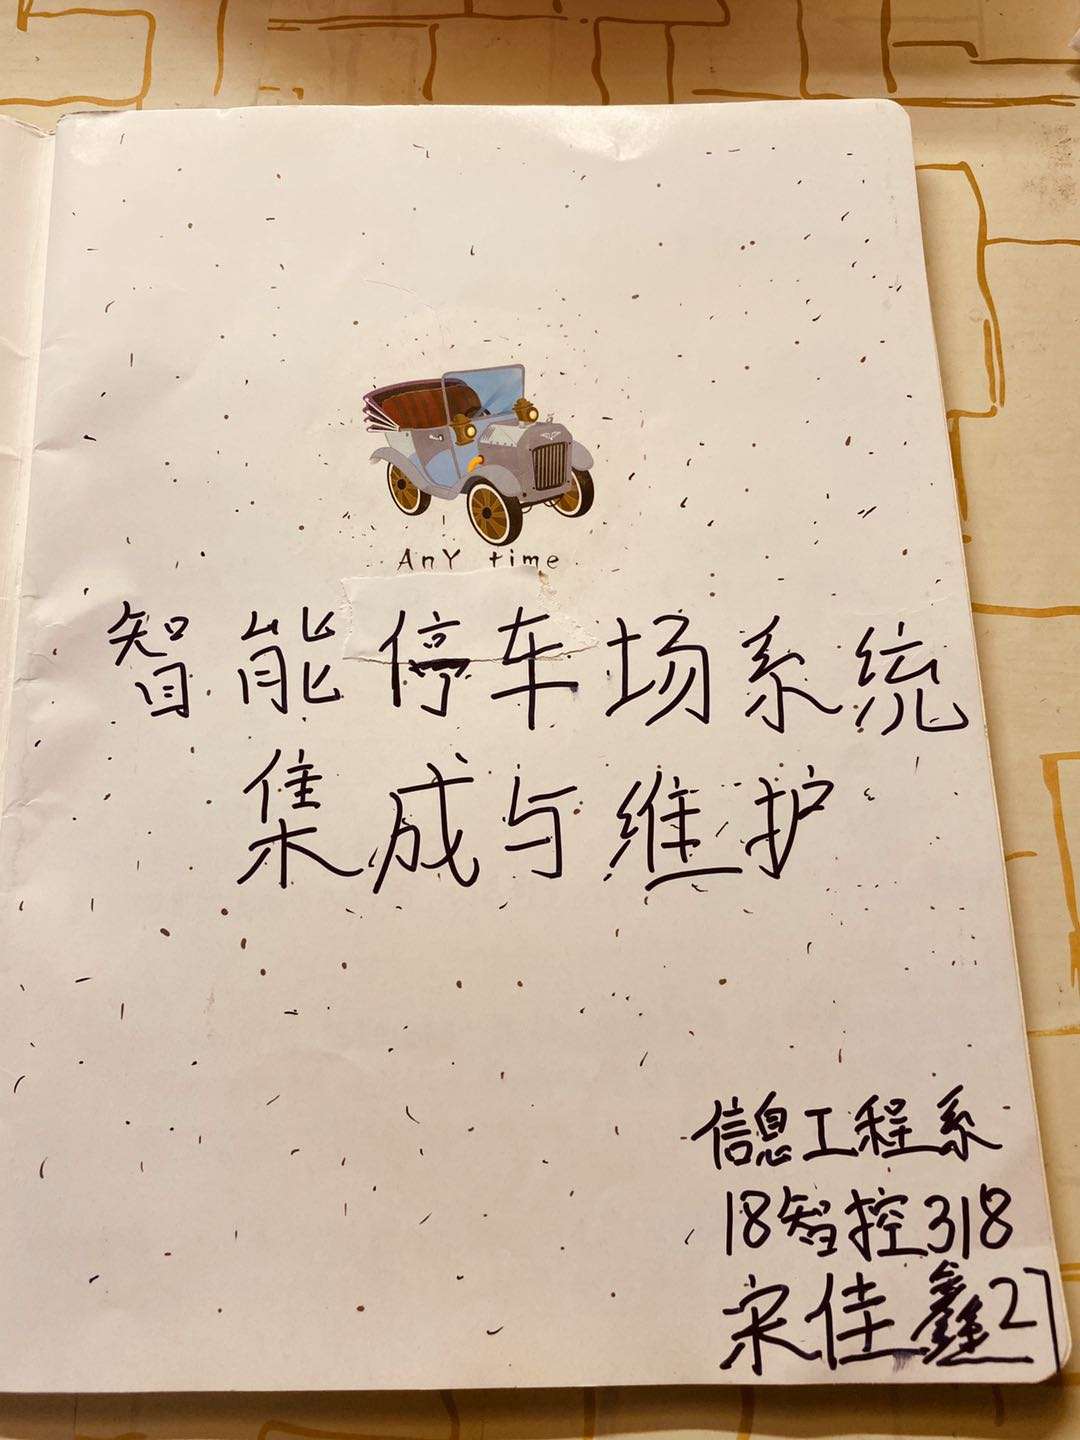 AnY time
智能停车场系统
集成与维护
信息工程系
18智控318
宋佳鑫27